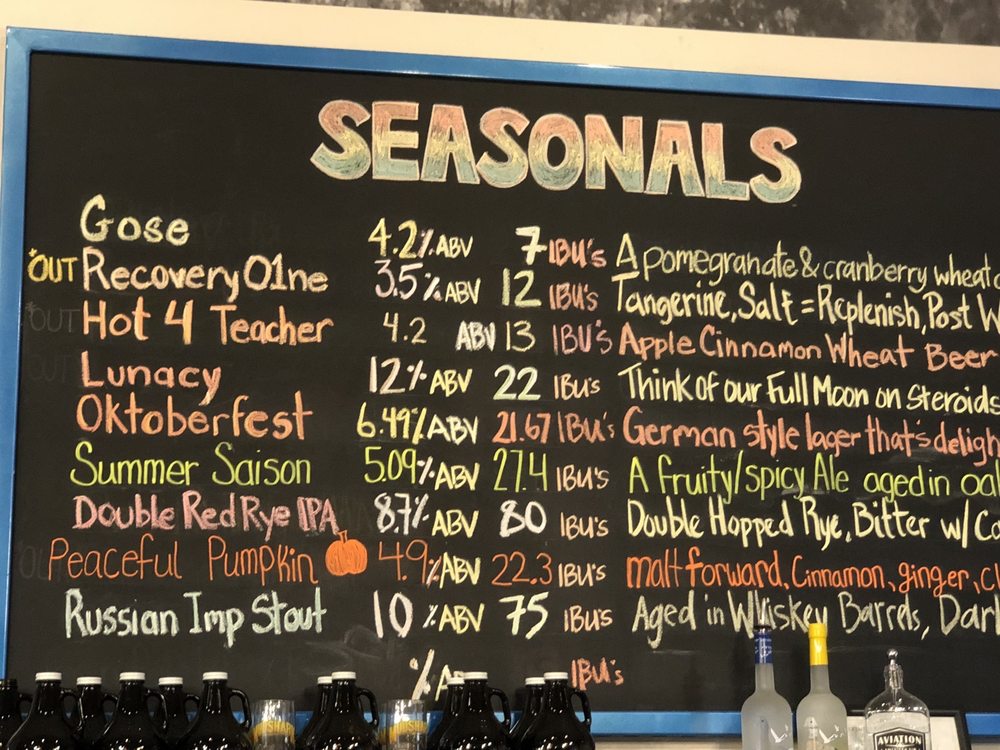 SEASONALS
Gose 4.2% ABV 7 IBU's A pomegranate & cranberry wheat
*OUT Recovery O1ne 3.5% ABV 12 IBU's Tangerine, Salt = Replenish, Post
OUT Hot 4 Teacher 4.2 ABV 13 IBU'S Apple Cinnamon Wheat Beer
Lunacy 12% ABV 22 IBU's Think of our Full Moon on Steroids
Oktoberfest 6.49% ABV 21.67 IBU's German style lager that's deligh
Summer Saison 5.09% ABV 27.4 IBU's A fruity/spicy Ale aged in oa
Double Red Rye IPA 8.7% ABV 80 IBU's Double Hopped Rye, Bitter w/ Co
Peaceful Pumpkin 4.9% ABV 22.3 IBU's malt forward, Cinnamon, ginger, cl
Russian Imp Stout 10 % ABV 75 IBU's Aged in Whiskey Barrels, Dark
% AB IBU's
AVIATION